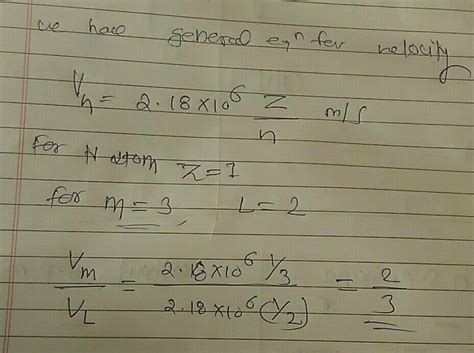 we have general eqⁿ for velocity
Vn = 2.18 × 10⁶ Z/n m/s
For H atom Z = 1
for m = 3, L = 2
Vm/VL = 2.18 × 10⁶ 1/3 / 2.18 × 10⁶ (1/2) = 2/3